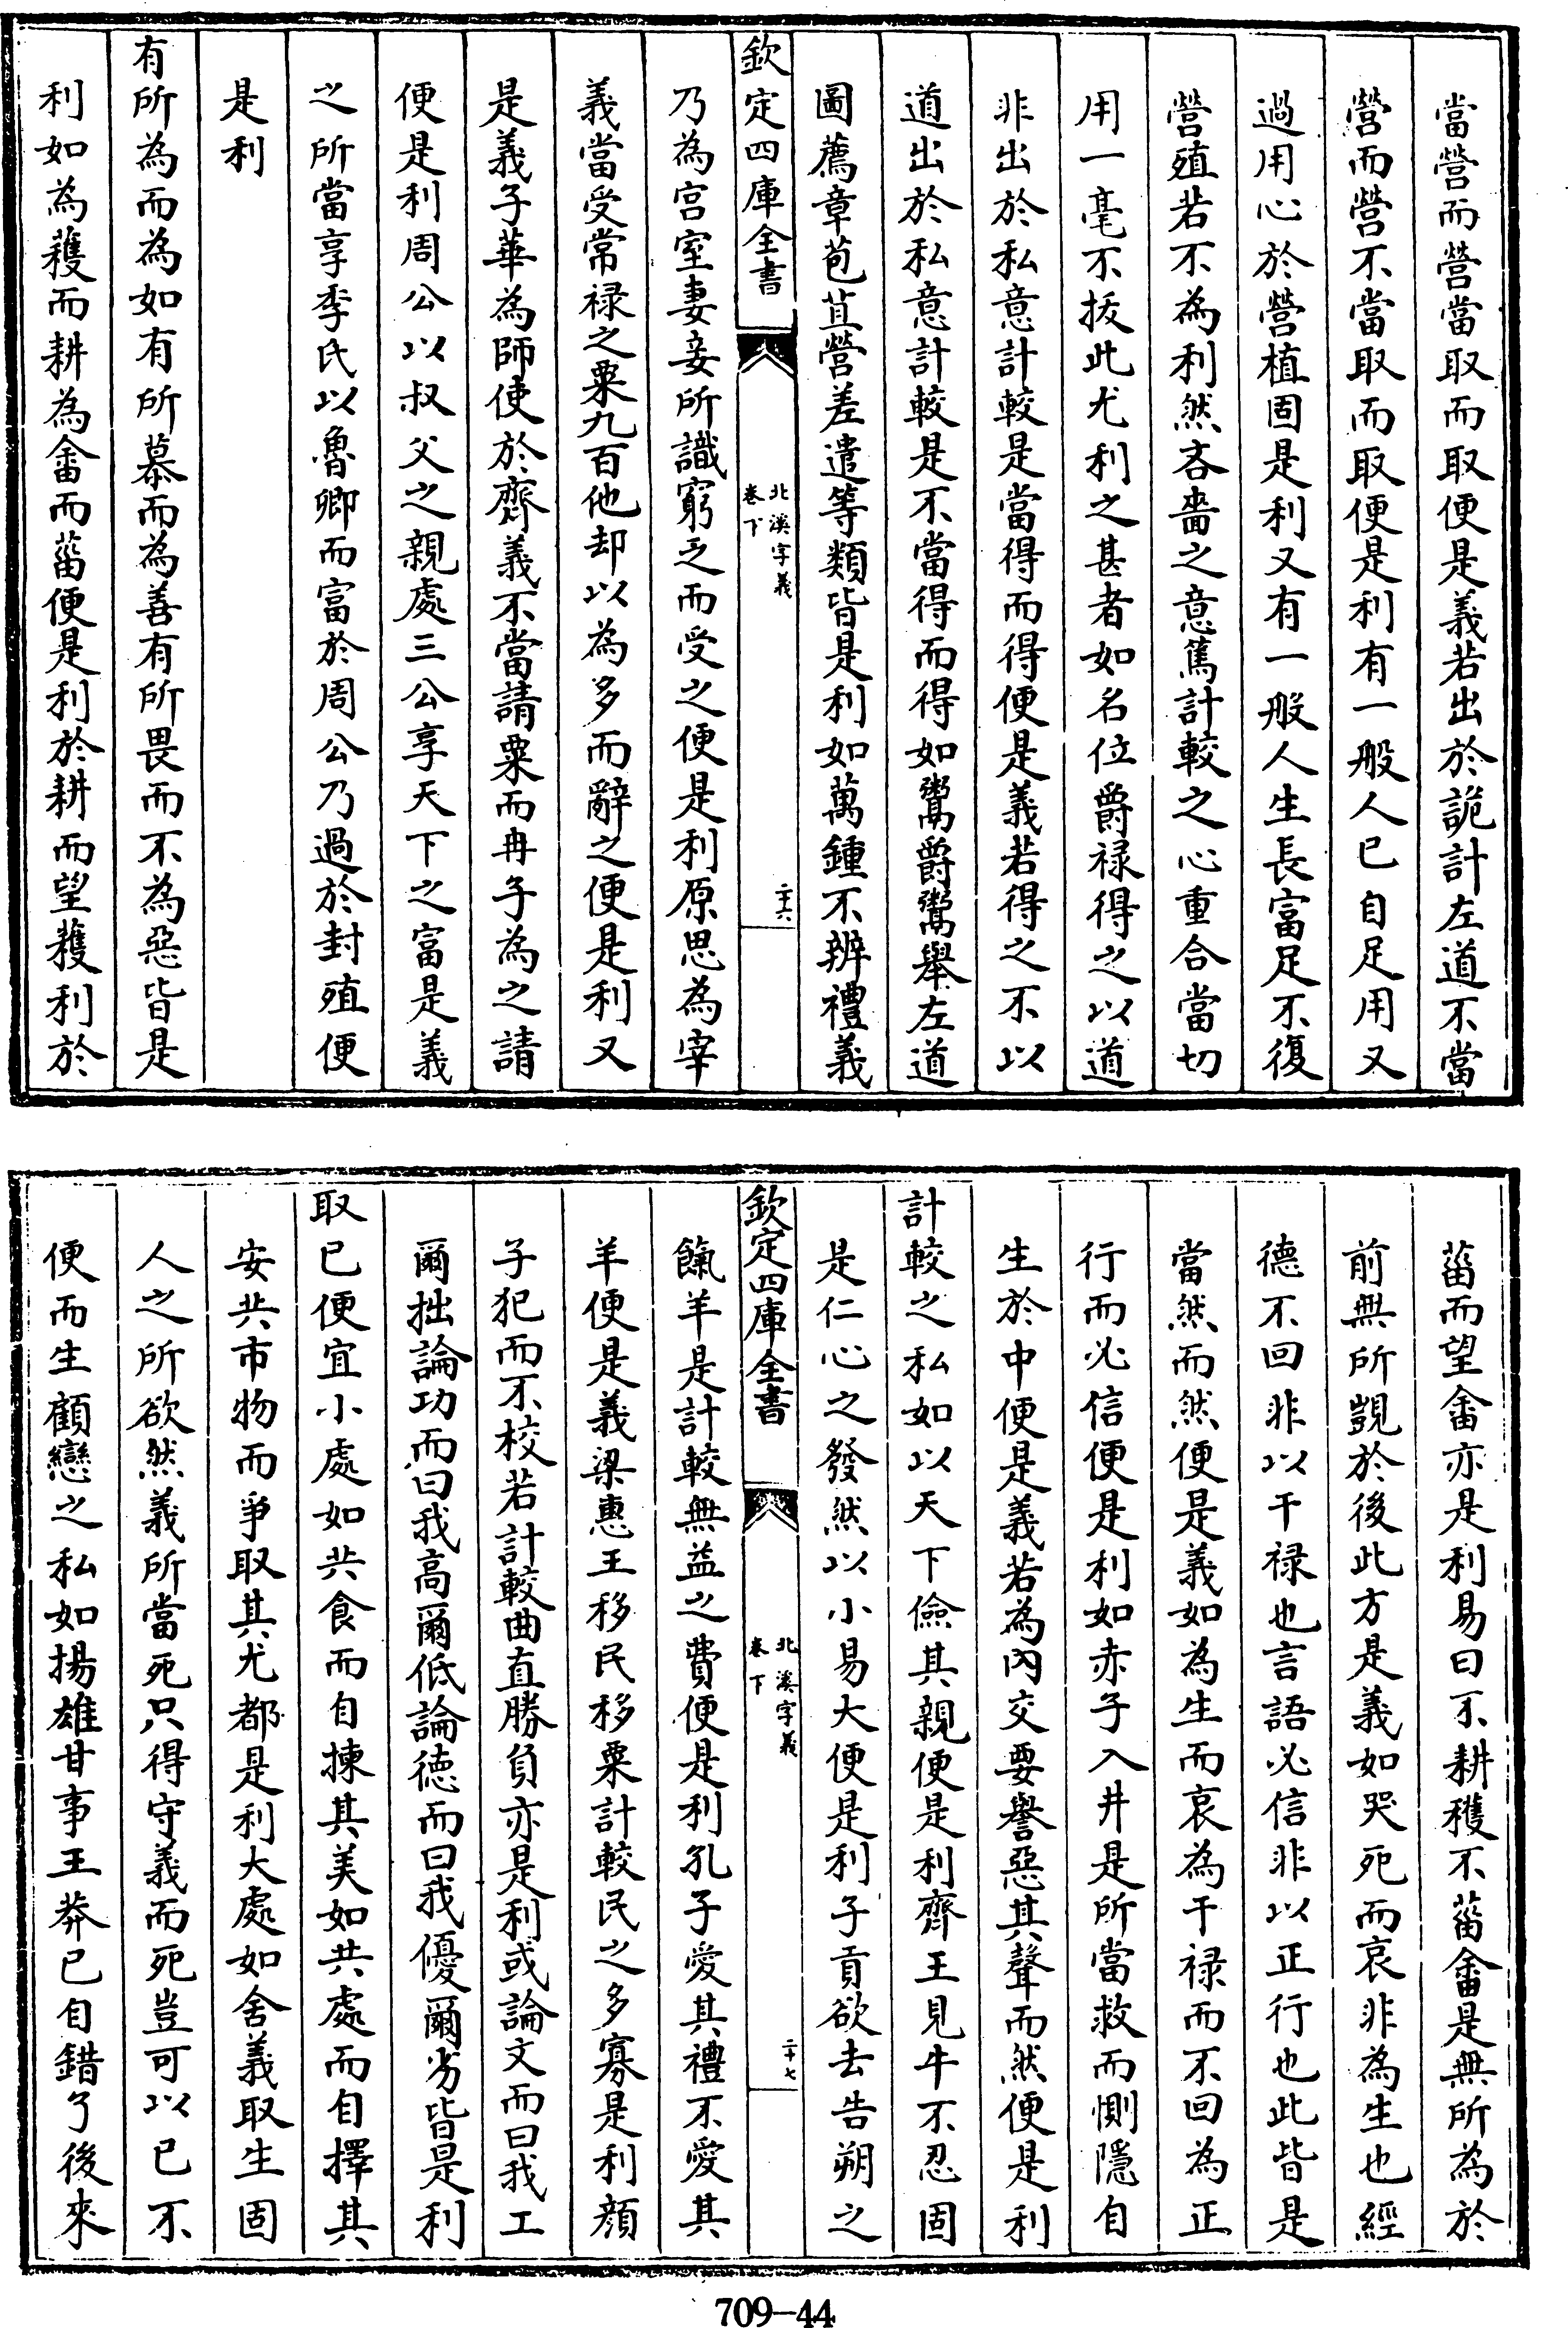 當營而營當取而取便是義若出於詭計左道不當
營而營不當取而取便是利有一般人已自足用又
過用心於營植固是利又有一般人生長富足不復
營殖若不為利然吝嗇之意篤計較之心重合當切
用一毫不拔此尤利之甚者如名位爵禄得之以道
非出於私意計較是當得而得便是義若得之不以
道出於私意計較是不當得而得如鬻爵鬻舉左道
圖薦章苞苴營差遣等類皆是利如萬鍾不辨禮義
欽定四庫全書
北溪字義
卷下
二十六
乃為宫室妻妾所識窮乏而受之便是利原思為宰
義當受常禄之粟九百他却以為多而辭之便是利又
是義子華為師使於齊義不當請粟而冉子為之請
便是利周公以叔父之親處三公享天下之富是義
之所當享季氏以魯卿而富於周公乃過於封殖便
是利
有所為而為如有所慕而為善有所畏而不為惡皆是
利如為穫而耕為畬而菑便是利於耕而望穫利於
菑而望畬亦是利易曰不耕穫不菑畬是無所為於
前無所覬於後此方是義如哭死而哀非為生也經
德不回非以干禄也言語必信非以正行也此皆是
當然而然便是義如為生而哀為干禄而不回為正
行而必信便是利如赤子入井是所當救而惻隱自
生於中便是義若為内交要譽惡其聲而然便是利
計較之私如以天下儉其親便是利齊王見牛不忍固
是仁心之發然以小易大便是利子貢欲去告朔之
欽定四庫全書
北溪字義
卷下
二十七
餼羊是計較無益之費便是利孔子愛其禮不愛其
羊便是義梁惠王移民移粟計較民之多寡是利顔
子犯而不校若計較曲直勝負亦是利或論文而曰我工
爾拙論功而曰我高爾低論德而曰我優爾劣皆是利
取已便宜小處如共食而自揀其美如共處而自擇其
安共市物而爭取其尤都是利大處如舍義取生固
人之所欲然義所當死只得守義而死豈可以已不
便而生顧戀之私如揚雄甘事王莽已自錯了後來
709-44